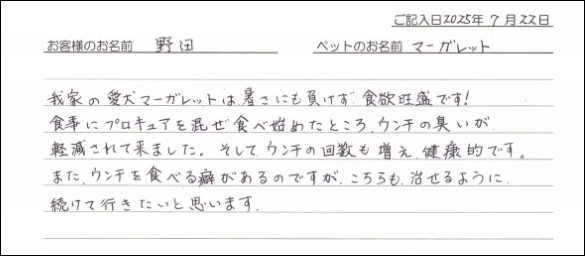 ご記入日2025年7月22日
お客様のお名前 野田 ペットのお名前 マーガレット
我家の愛犬マーガレットは、暑さにも負けず、食欲旺盛です!
食事にプロキュアを混ぜ食べ始めたところ、ウンチの臭いが、
軽減されて来ました。そして、ウンチの回数も増え、健康的です。
また、ウンチを食べる癖があるのですが、こちらも、治せるように、
続けて行きたいと思います。